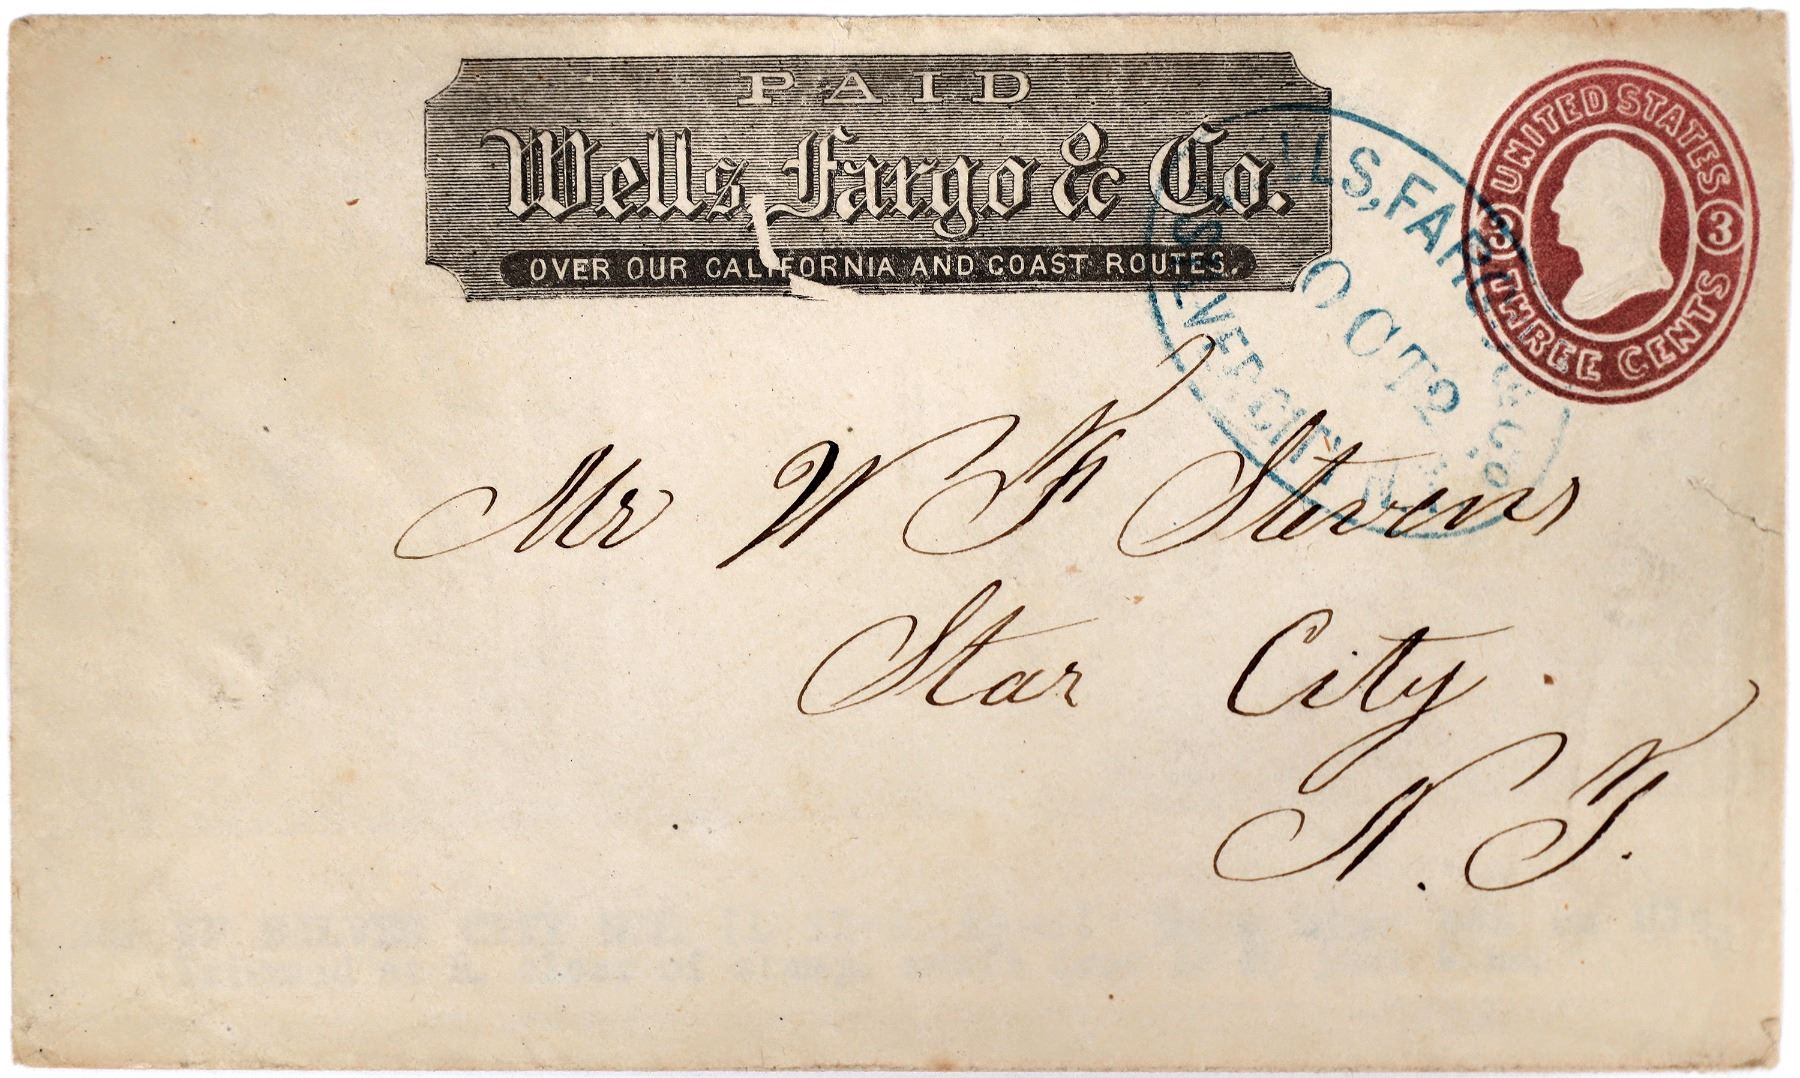 PAID
Wells, Fargo & Co.
OVER OUR CALIFORNIA AND COAST ROUTES.
UNITED STATES
3 3
THREE CENTS
WELLS, FARGO & Co.
OCT 2
SILVER CITY N.T.
Mr W F Stevens
Star City.
N. T.